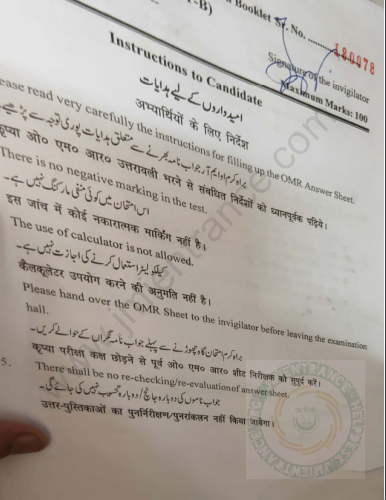 -B)
Booklet Sr. No. ..........
180078
Signature of the invigilator
Maximum Marks: 100
Instructions to Candidate
امیدواروں کے لیے ہدایات
अभ्यार्थियों के लिए निर्देश
ease read very carefully the instructions for filling up the OMR Answer Sheet.
براہ کرم او ایم آر جواب نامہ بھرنے سے متعلق ہدایات پوری توجہ سے پڑھیے
कृप्या ओ० एम० आर० उत्तरावली भरने से संबंधित निर्देशों को ध्यानपूर्वक पढ़िये।
There is no negative marking in the test.
اس امتحان میں کوئی منفی مارکنگ نہیں ہے۔
इस जांच में कोई नकारात्मक मार्किंग नहीं है।
The use of calculator is not allowed.
کیلکولیٹر استعمال کرنے کی اجازت نہیں ہے۔
कैलकूलेटर उपयोग करने की अनुमति नहीं है।
Please hand over the OMR Sheet to the invigilator before leaving the examination
hall.
براہ کرم امتحان گاہ چھوڑنے سے پہلے جواب نامہ نگراں کے حوالے کریں۔
कृप्या परीक्षा कक्ष छोड़ने से पूर्व ओ० एम० आर० शीट निरीक्षक को सुपुर्द करें।
5.
There shall be no re-checking/re-evaluation of answer sheet.
جواب ناموں کی دوبارہ جانچ/دوبارہ تحسیب نہیں کی جائے گی۔
उत्तर-पुस्तिकाओं का पुनर्निरीक्षण/पुनरांकलन नहीं किया जायेगा।